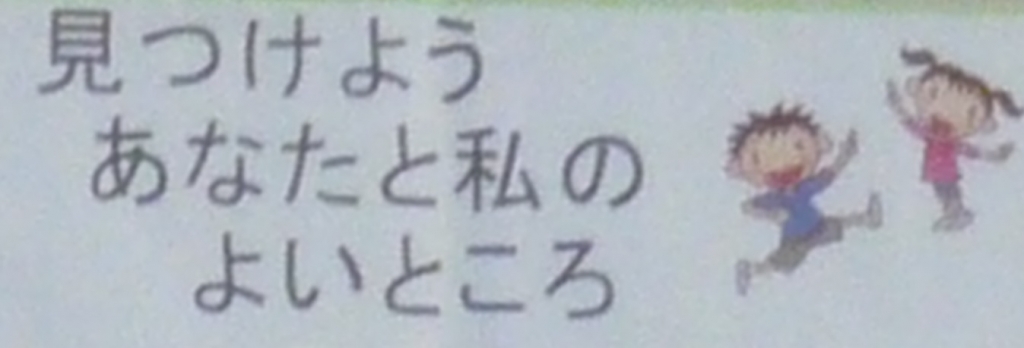 見つけよう
あなたと私の
よいところ